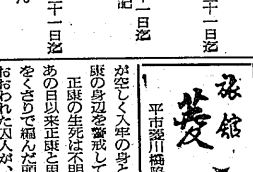 十一日迄
十一日迄
記
十一日迄
ん
旅館
菱
平市菱川橋際
が空しく入牢の身と
康の身辺を警戒して
正康の生死は不明
あの日以来正康と思
をくさりで編んだ頭
おおわれた囚人が、